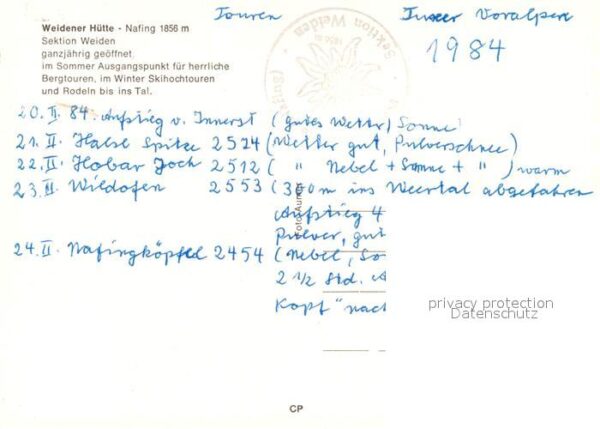 Touren
Tuxer Voralpen
1984
Weidener Hütte - Nafing 1856 m
Sektion Weiden
ganzjährig geöffnet,
im Sommer Ausgangspunkt für herrliche
Bergtouren, im Winter Skihochtouren
und Rodeln bis ins Tal.
Sektion Weiden
1856 m
20. II. 84. Aufstieg v. Innerst (gutes Wetter) Sonne
21. II. Halse Spitze 2574 (Wetter gut, Pulverschnee)
22. II. Hobar Joch 2512 ( " Nebel + Sonne + " ) warm
23. II. Wildofen 2553 (300m ins Weertal abgefahren
Aufstieg 4
Pulver, gut
24. II. Nafingköpfel 2454 (Nebel, So
2 1/2 Std. A
Kopf" nach
Foto Aurel
privacy protection
Datenschutz
CP